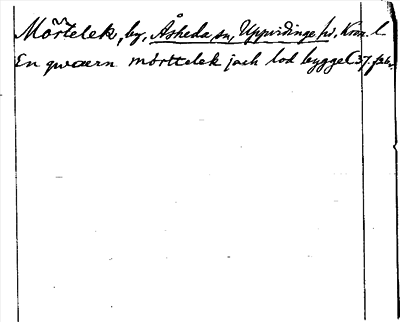 Mörtelek, by, Åsheda sn, Uppvidinge hd, Kron. l
En qwærn mörttelek jach lod bygge